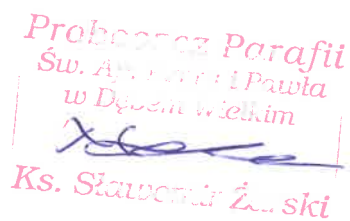 Proboszcz Parafii
Św. Ap. Piotra i Pawła
w Dębem Wielkim
Ks. Sławomir